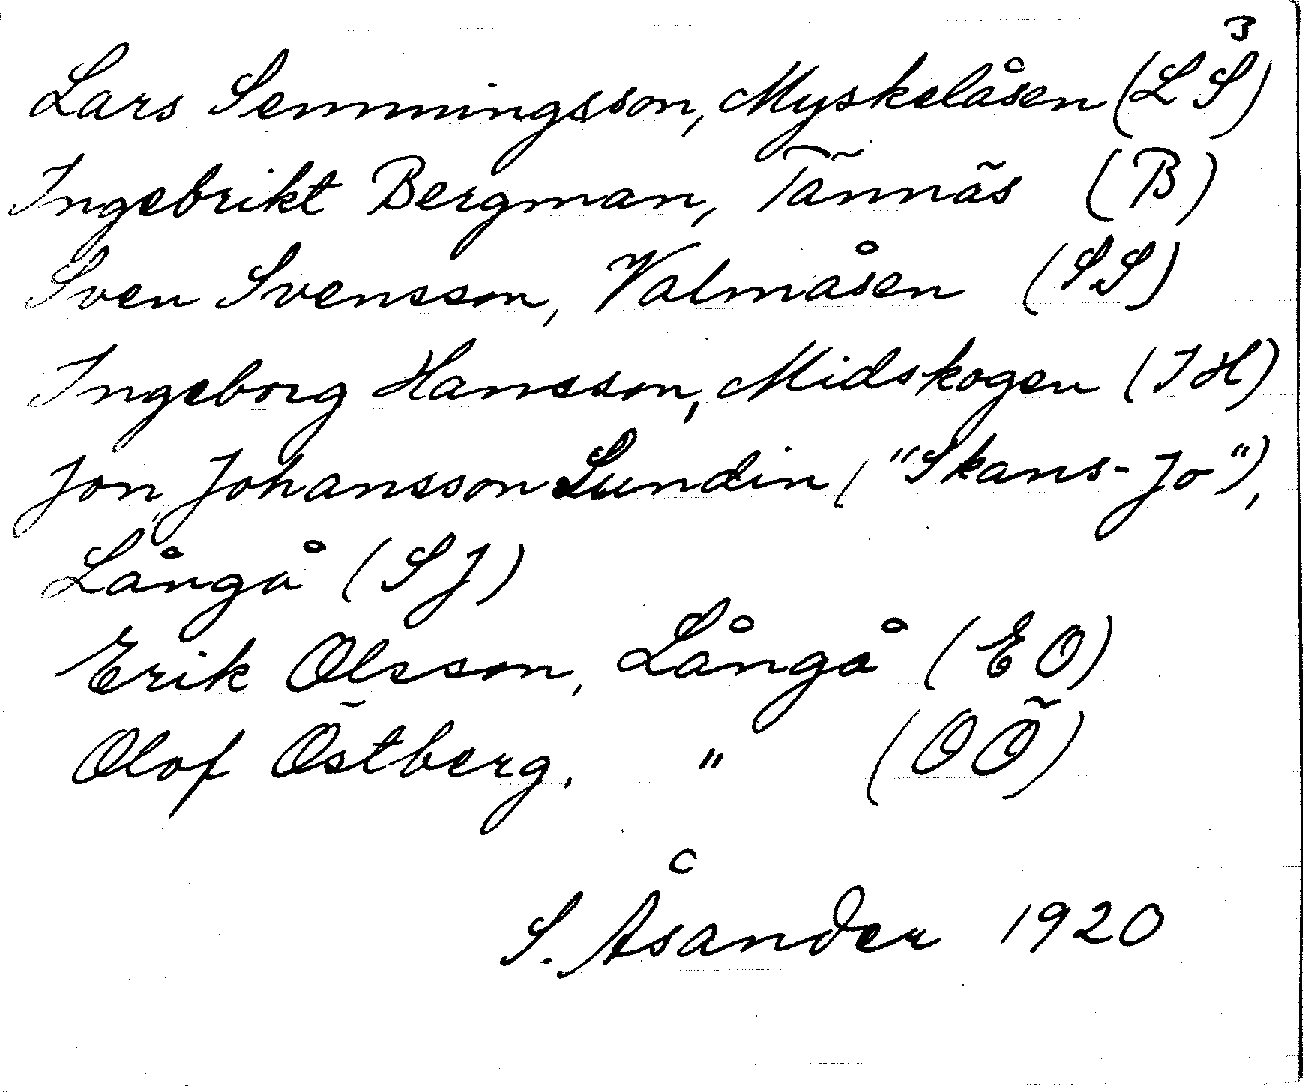 3
Lars Semmingsson, Myskelåsen (LS)
Ingebrikt Bergman, Tännäs (B)
Sven Svensson, Valmåsen (SS)
Ingeborg Hansson, Midskogen (IH)
Jon Johansson Lundin ("Skans-Jo"),
Långå (SJ)
Erik Olsson, Långå (EO)
Olof Östberg, " (OÖ)
S. Åsander 1920